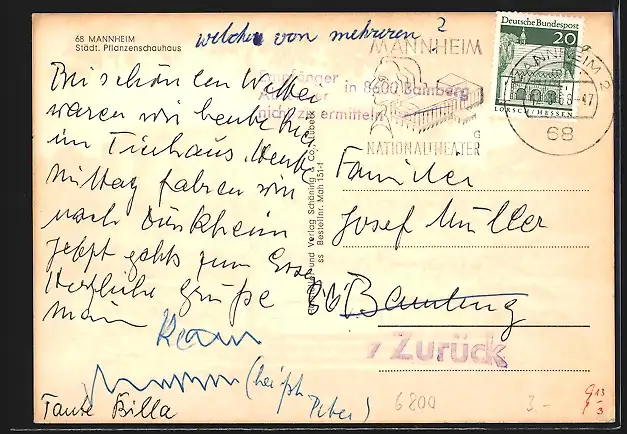 68 MANNHEIM
Städt. Pflanzenschauhaus
welchen von mehreren ?
Bei schönen Wetter
waren wir heute hier
im Tierhaus. Heute
Mittag fahren wir
nach Dürkheim
jetzt gehts zum Essen
Herzliche Grüße
(heißt
Peter)
Tante Billa
Empfänger in 8600 Bamberg
nicht zu ermitteln
und Verlag Schöning & Co., Lübeck
Bestellnr. Man 151
MANNHEIM
NATIONALTHEATER
G
Deutsche Bundespost
20
LORSCH/HESSEN
MANNHEIM 2
68
Familie
Josef Müller
86 Bamberg
Zurück
6800
3.-